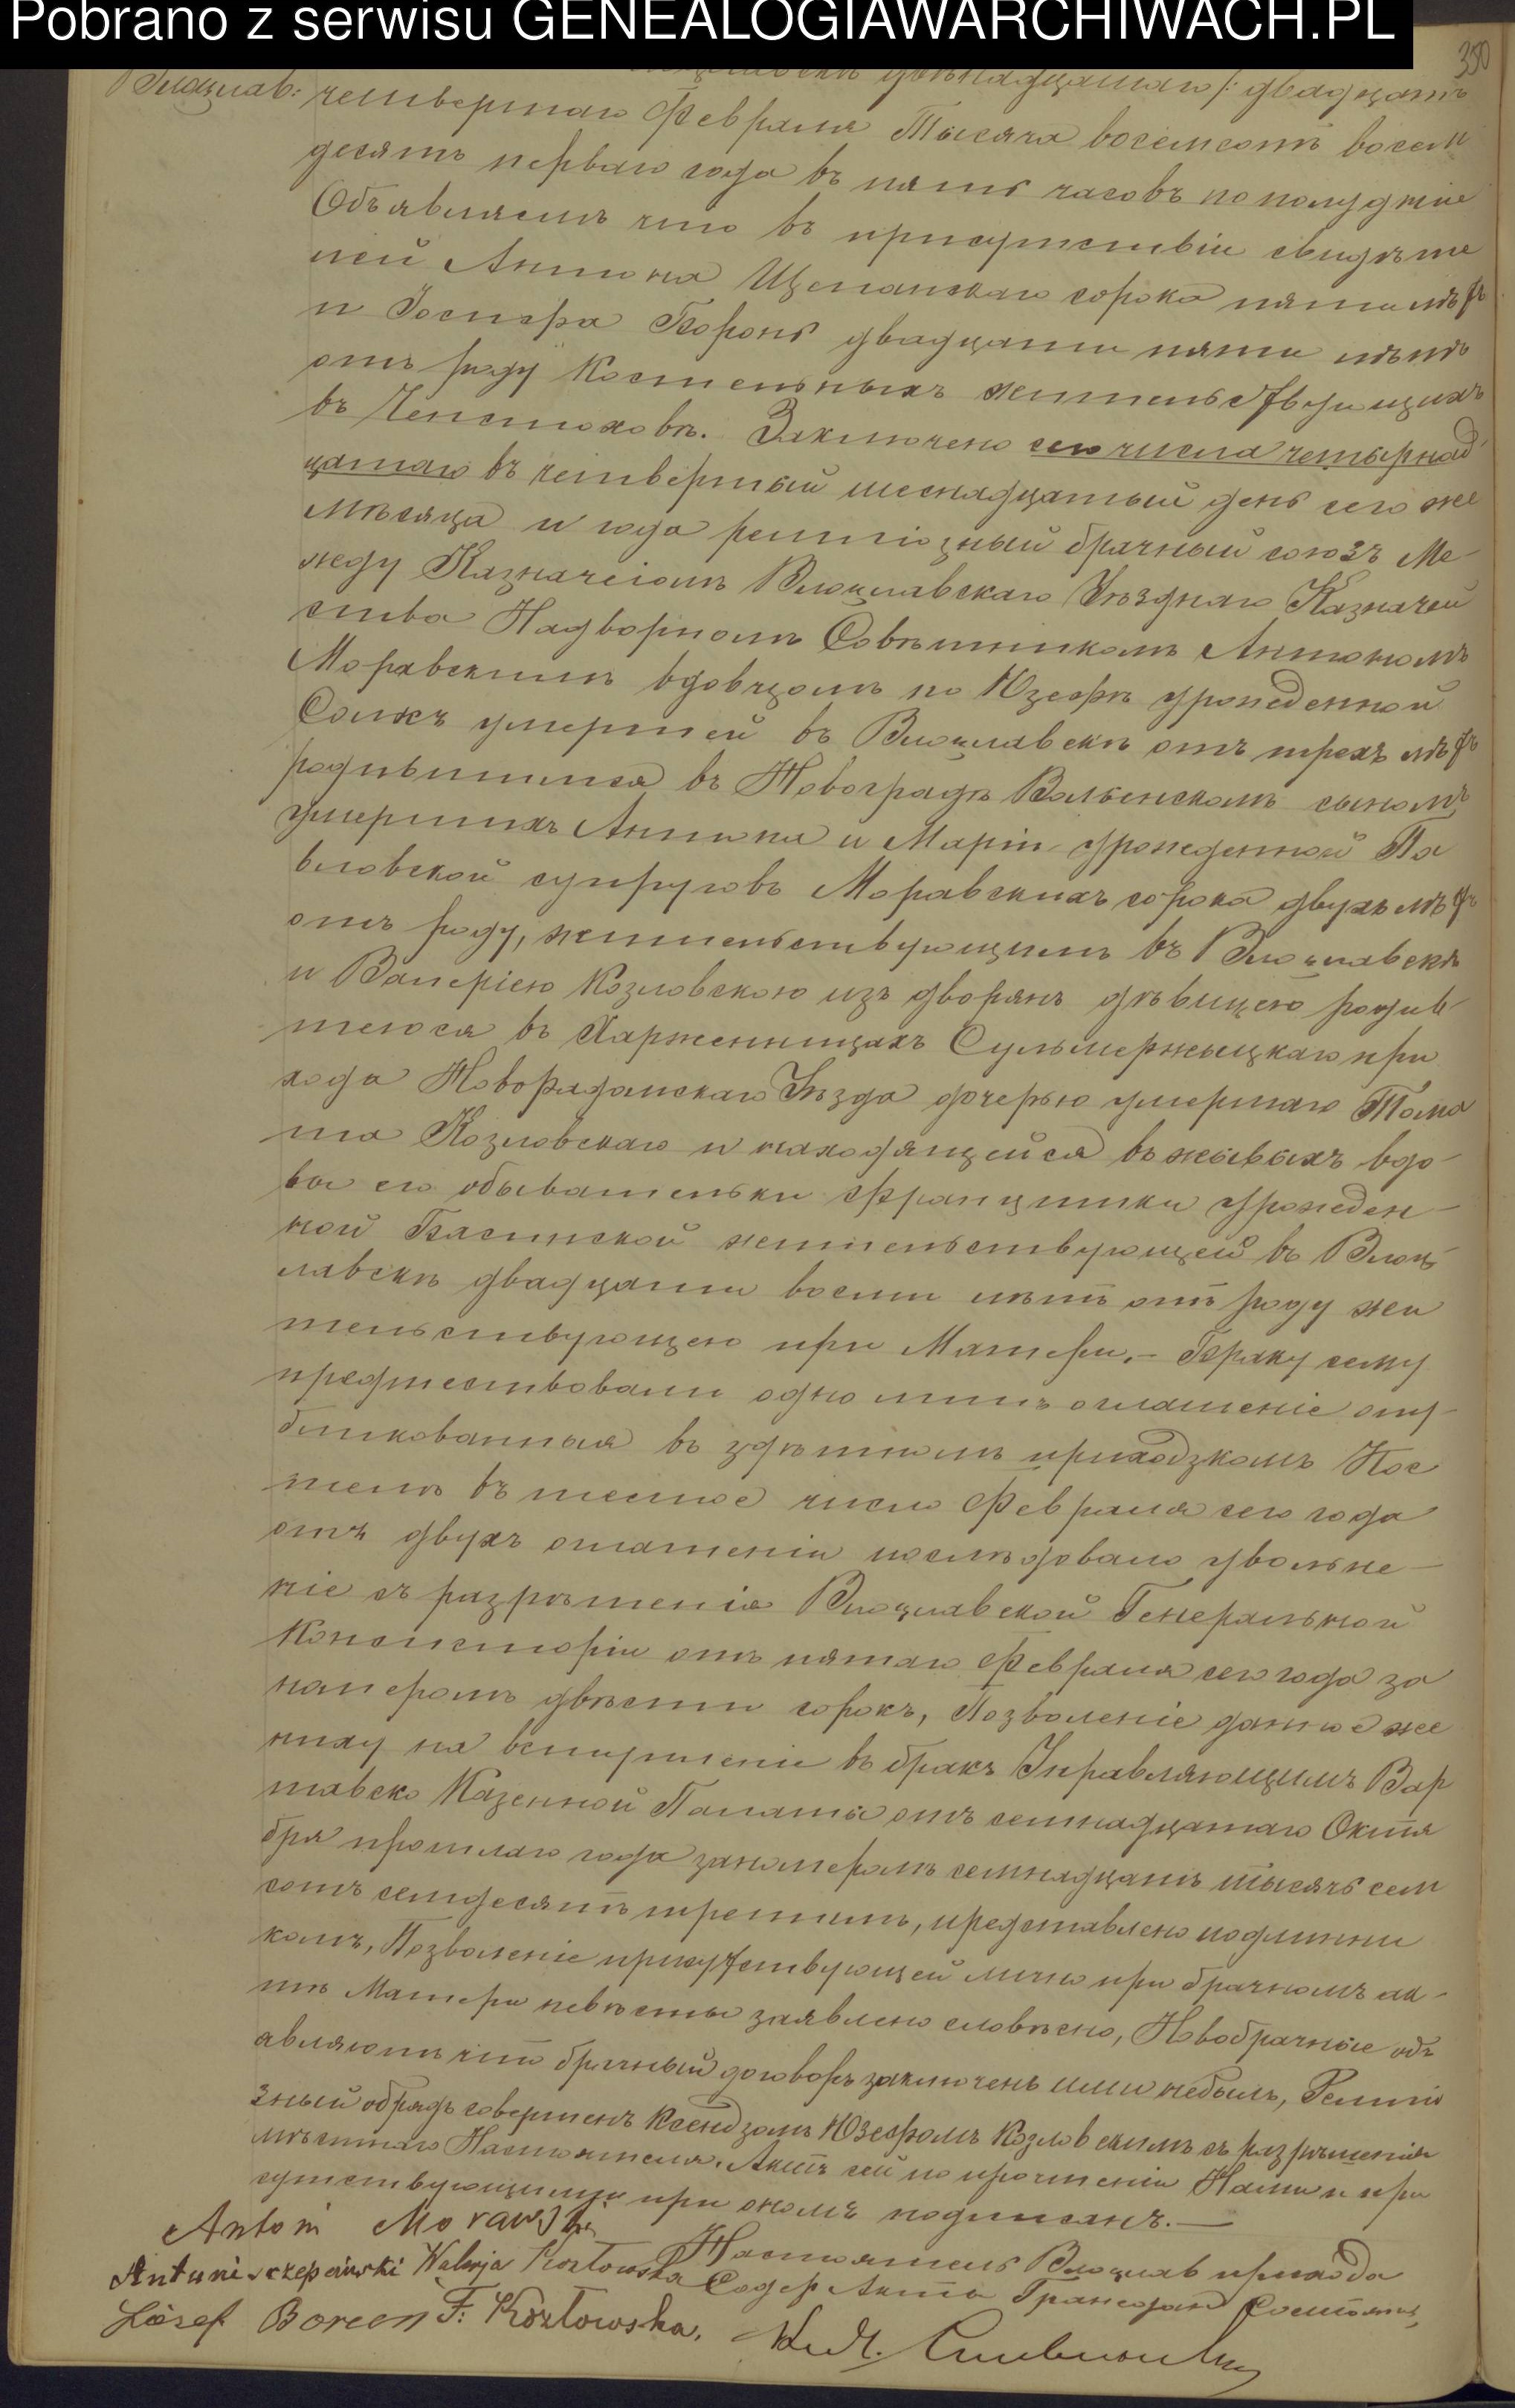 Pobrano z serwisu GENEALOGIAWARCHIWACH.PL
350
Влоцлав: четвертаго Февраля Тысяча восемсотъ восем
десятъ перваго года въ пять часовъ пополуднiи
Объявляемъ что въ присутствiи свидѣте
лей Антона Щепанскаго сорока пяти лѣтъ
и Iосифа Боронь двадцати пяти лѣтъ
отъ роду Костельныхъ жительствующихъ
въ Ченстоховѣ. Заключено сего числа четырнад
цатаго въ четвертый шеснадцатый день сего же
мѣсяца и года религiозный брачный союзъ Ме
жду Казначеiомъ Влоцлавскаго Уѣзднаго Казначей
ства Надворномъ Совѣтникомъ Антономъ
Моравскимъ вдовцомъ по Юзефѣ урожденной
умершей въ Влоцлавскѣ отъ трехъ лѣтъ
родившимся въ Новоградѣ Волынскомъ сыномъ
умершихъ Антона и Марiи урожденной Па
вловской супруговъ Моравскихъ сорока двухъ лѣтъ
отъ роду, жительствующимъ въ Влоцлавскѣ
и Валерiею Козловскою изъ дворянъ дѣвицею родив
шеюся въ Сульмержыцкаго при
хода Новорадомскаго Уѣзда дочерью умершаго Тома
ша Козловскаго и находящейся въ живыхъ вдо
вы его обывательки Францишки урожден
ной жительствующей въ Влоц
лавскѣ двадцати восьми лѣтъ отъ роду жи
тельствующею при Матери. – Браку сему
предшествовали одно лишъ оглашенiе опу
бликованныя въ здѣшномъ приходзкомъ Кос
телѣ въ шестое число Февраля сего года
отъ двухъ оглашенiи послѣдовало увольне
нiе съ разрѣшенiя Влоцлавской Генеральной
Консисторiи отъ пятаго Февраля сего года за
номеромъ двѣсти сорокъ, Позволенiе данное же
ниху на вступленiе въ бракъ Управляющимъ Вар
шавско Казенной Палаты отъ семнадцатаго Октя
бря прошлаго года заномеромъ семнадцать тысячъ сем
сотъ семдесятъ третимъ, представлено подлинни
комъ, Позволенiе присутствующей лично при брачномъ ак
тѣ Матери невѣсты заявлено словѣсно, Новобрачные объ
авляютъ что брачный договоръ заключенъ ими небылъ, Религiо
зный обрядъ совершенъ Ксендзомъ Юзефомъ Козловскимъ съ разрѣшенiя
мѣстнаго Настоятеля. Актъ сей по прочтенiи Нами и при
сутствующими при ономъ подписанъ. —
Antoni Morawski
Antoni Szczepański Walerja Kozłowska Настоятель Влоцлав прихода
Józef Boroen F. Kozłowska. Содер Акты Гражедан Состоянiя